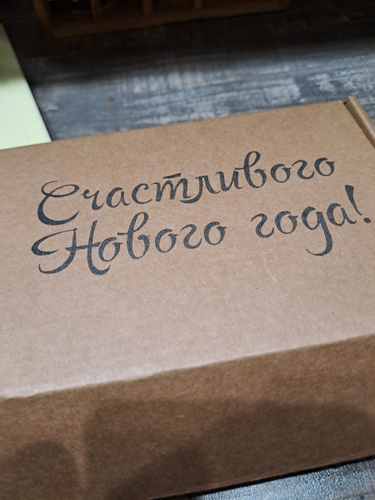 Счастливого
Нового года!